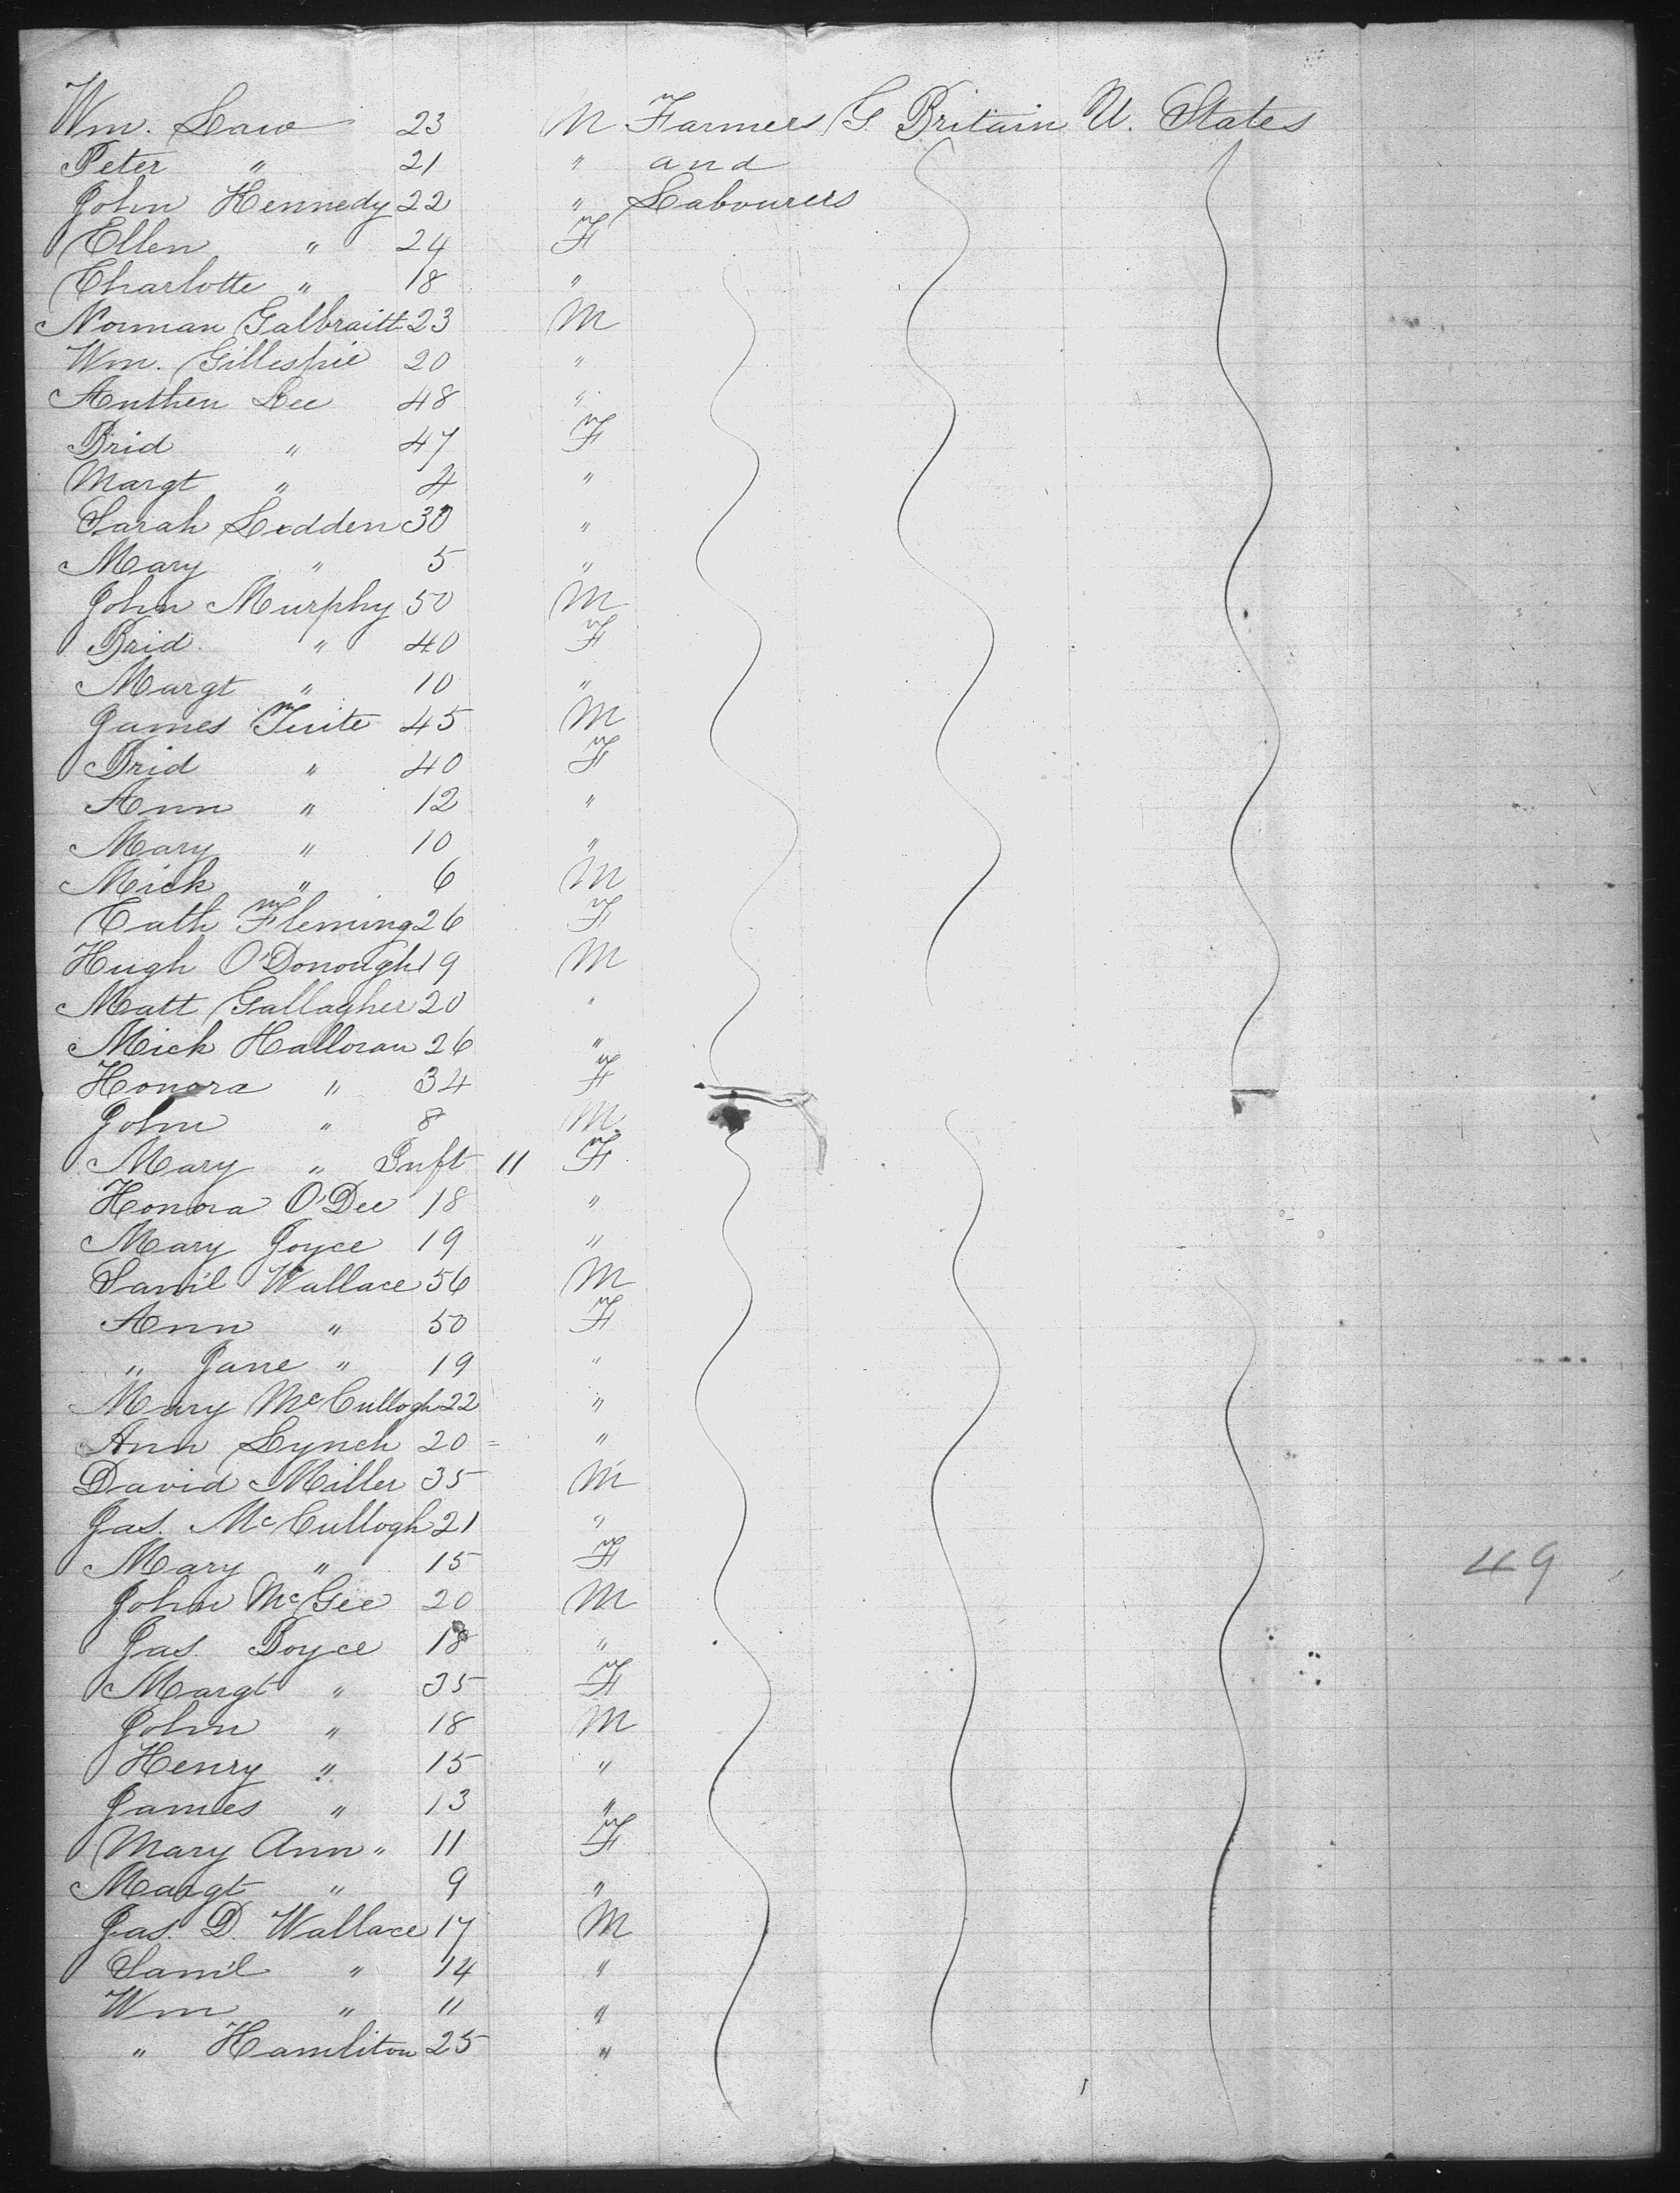 Wm. Law 23 M Farmers G. Britain U. States
Peter " 21 " and
John Kennedy 22 " Labourers
Ellen " 24 F
Charlotte " 18 "
Norman Galbraith 23 M
Wm. Gillespie 20 "
Anthen Lee 48 "
Brid " 47 F
Margt " 4 "
Sarah Ledden 30 "
Mary " 5 "
John Murphy 50 M
Brid " 40 F
Margt " 10 "
James Tuite 45 M
Brid " 40 F
Ann " 12 "
Mary " 10 "
Mick " 6 M
Cath Fleming 26 F
Hugh O'Donough 19 M
Matt Gallagher 20 "
Mick Halloran 26 "
Honora " 34 F
John " 8 M
Mary " Inft 11 F
Honora O'Dee 18 "
Mary Joyce 19 "
Saml Wallace 56 M
Ann " 50 F
" Jane " 19 "
Mary McCullogh 22 "
Ann Lynch 20 "
David Miller 35 M
Jas. McCullogh 21 "
Mary " 15 F
John McGee 20 M
Jas. Boyce 18 "
Margt " 35 F
John " 18 M
Henry " 15 "
James " 13 "
Mary Ann " 11 F
Margt " 9 "
Jas. D. Wallace 17 M
Saml " 14 "
Wm " 11 "
" Hamliton 25 "
49